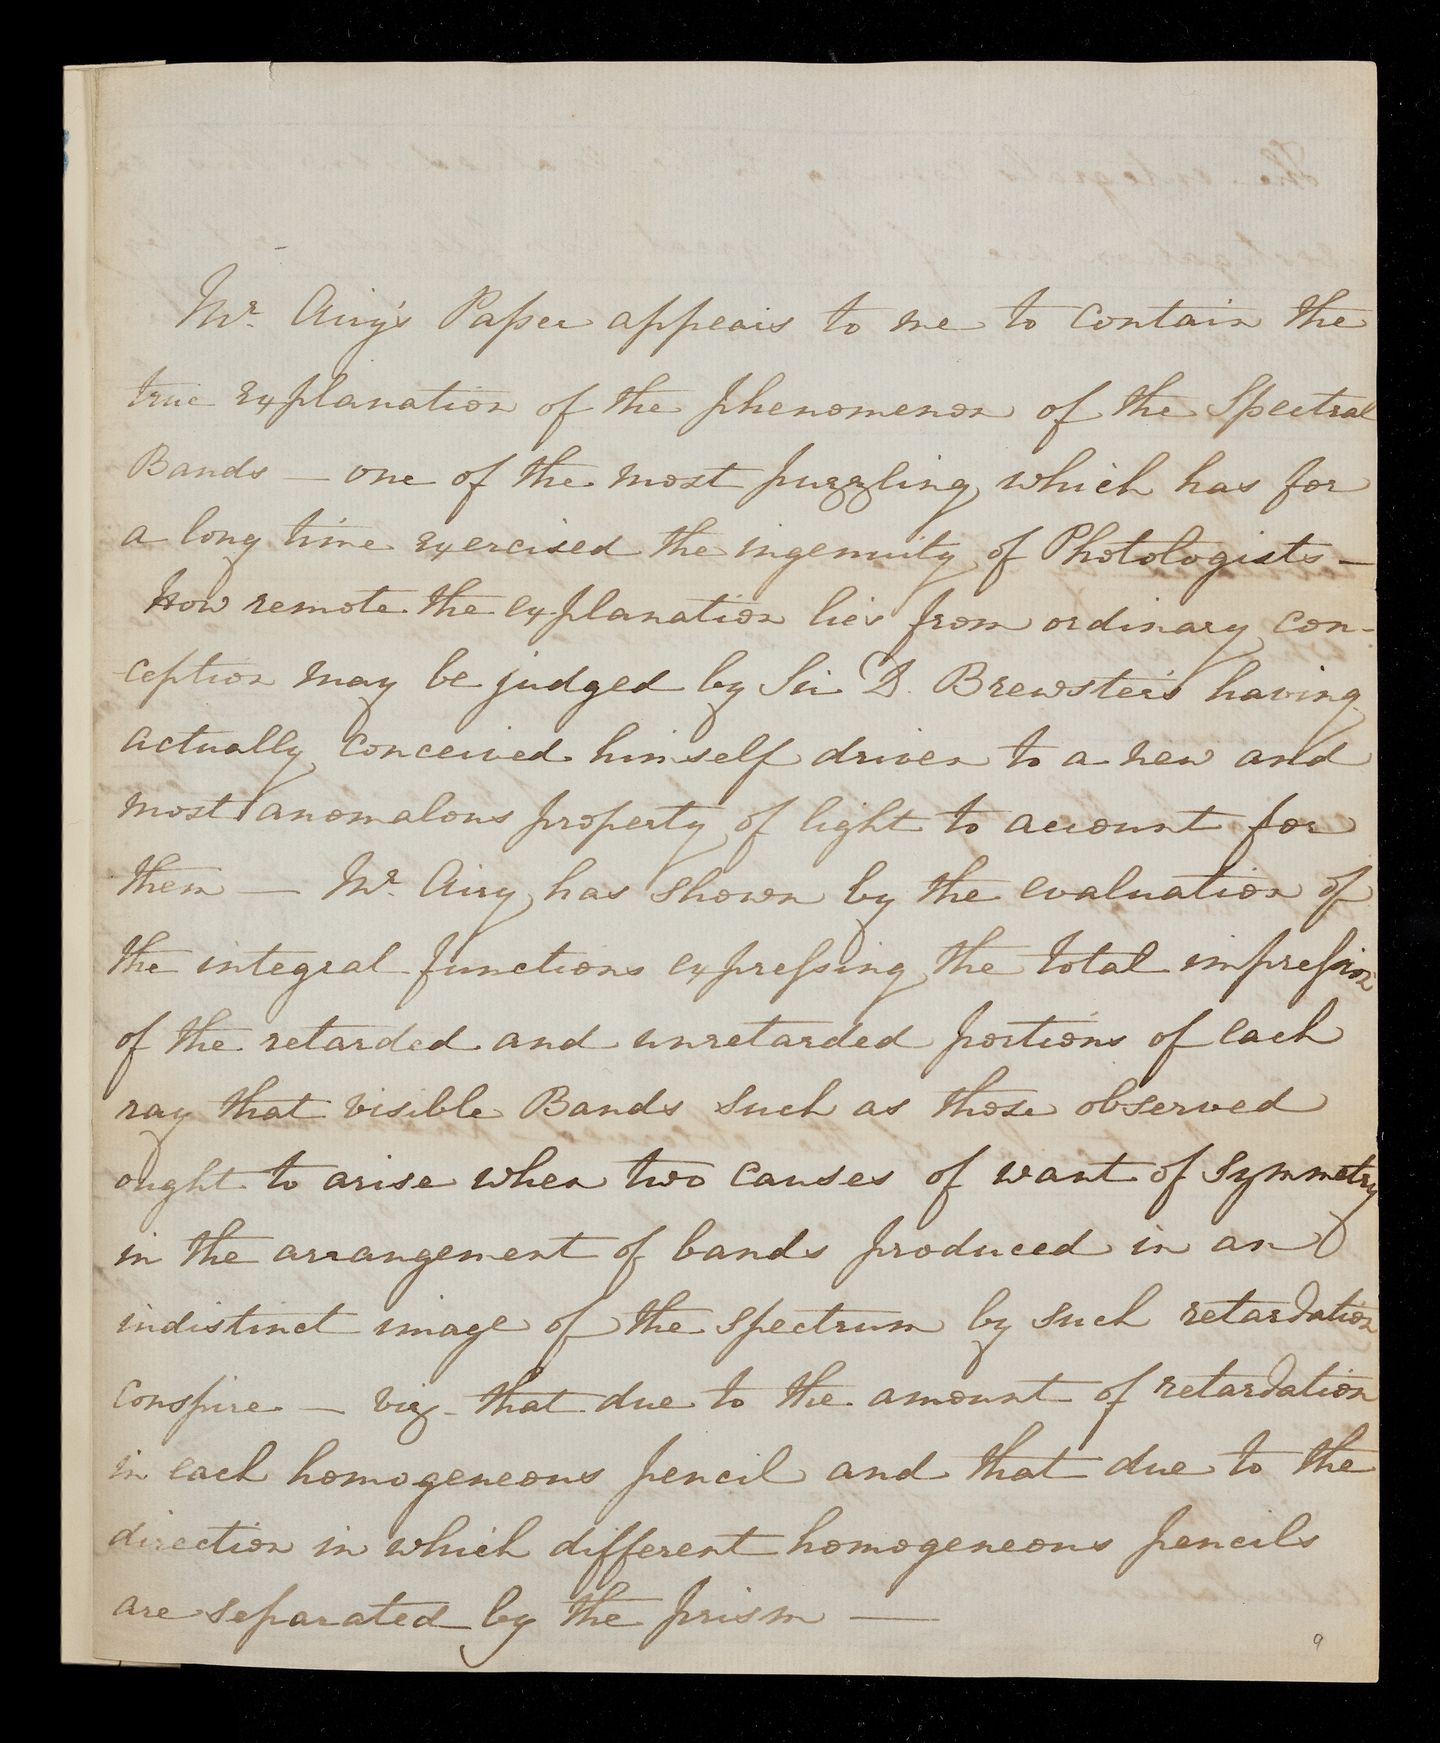 Mr. Airy's Paper appears to me to contain the
true explanation of the phenomenon of the Spectral
Bands — one of the most puzzling which has for
a long time exercised the ingenuity of Photologists —
How remote the explanation lies from ordinary con-
ception may be judged by Sir D. Brewster's having
actually conceived himself driven to a new and
most anomalous property of light to account for
them — Mr. Airy has shown by the evaluation of
the integral functions expressing the total impression
of the retarded and unretarded portions of each
ray that visible Bands such as those observed
ought to arise when two causes of want of symmetry
in the arrangement of bands produced in an
indistinct image of the spectrum by such retardation
conspire — viz. that due to the amount of retardation
in each homogeneous pencil and that due to the
direction in which different homogeneous pencils
are separated by the prism —
9